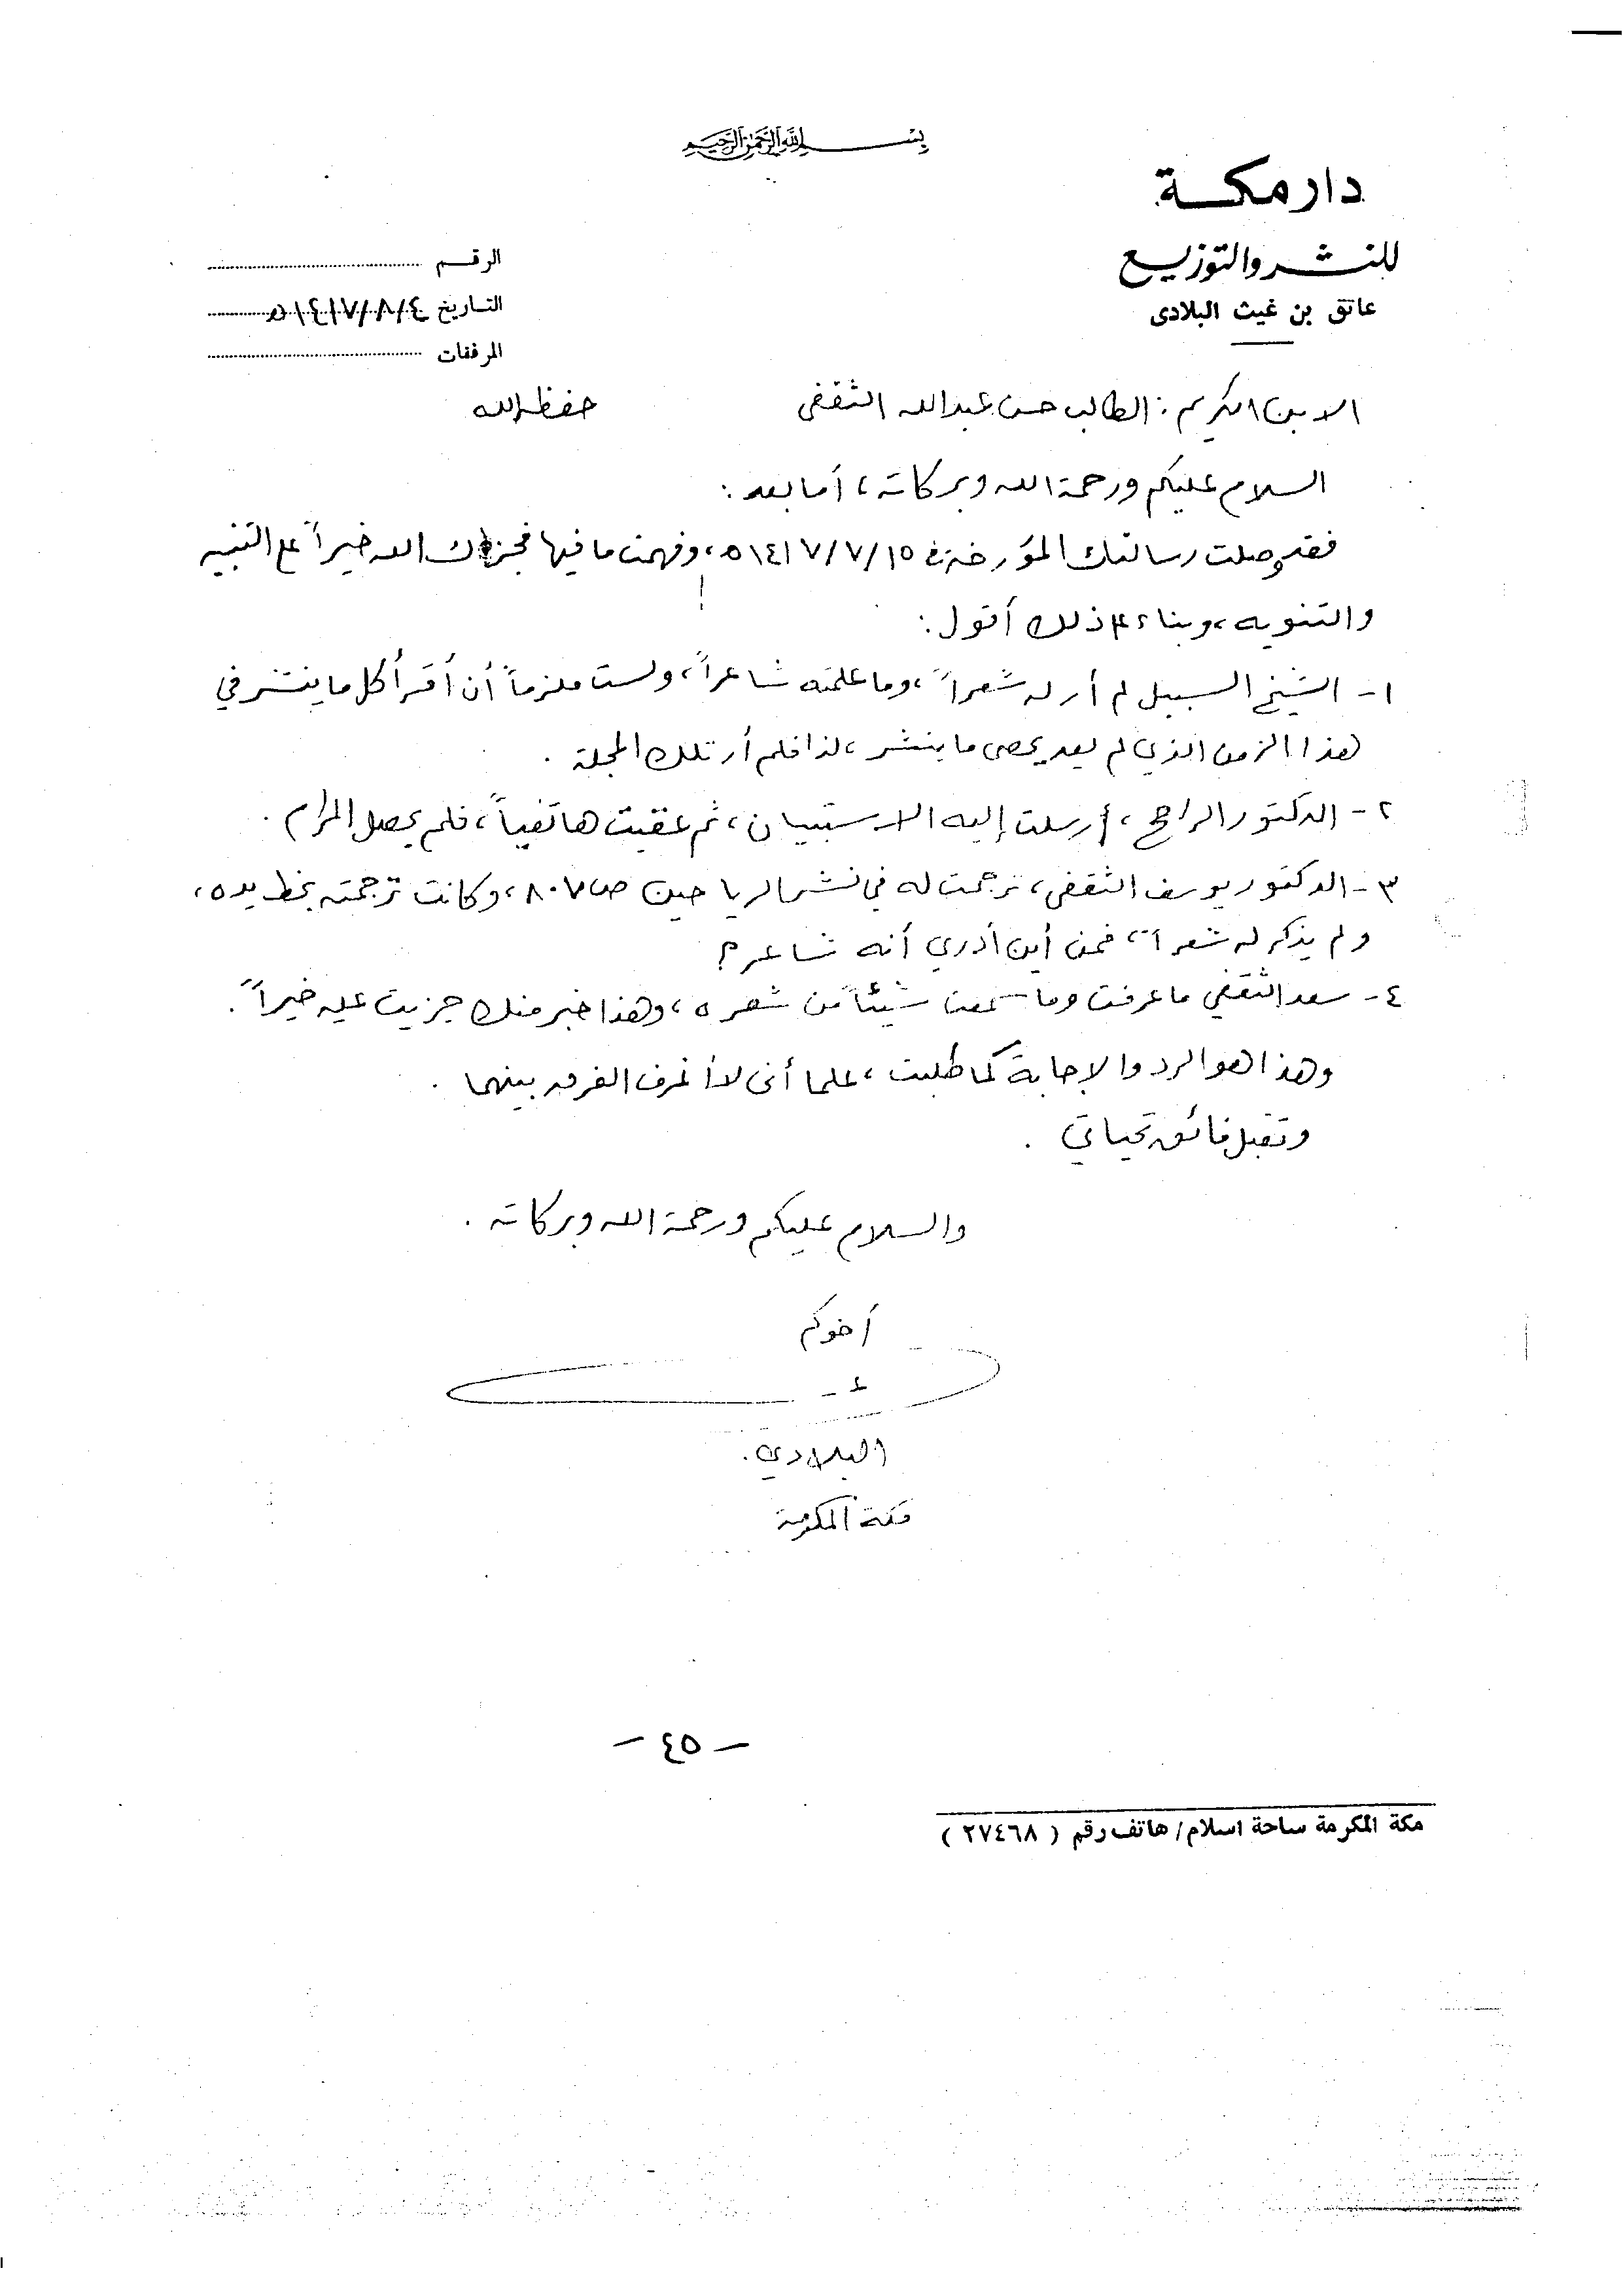 بسم الله الرحمن الرحيم
دار مكة
للنشر والتوزيع
عاتق بن غيث البلادى
الرقم
التاريخ ٤/٨/١٤١٧هـ
المرفقات
الابن الكريم : الطالب حسن عبدالله الثقفي حفظه الله
السلام عليكم ورحمة الله وبركاته، أما بعد :
فقد وصلت رسالتك المؤرخة في ١٥/٧/١٤١٧هـ، وفهمت ما فيها فجزاك الله خيراً على التنبيه
والتنويه، وبناء على ذلك أقول :
١- الشيخ السبيل لم أر له شعراً، وما علمته شاعراً، ولست ملزماً أن أقرأ كل ما ينشر في
هذا الزمن الذي لم يعد يحصى ما ينشر، لذا فلم أر تلك المجلة .
٢- الدكتور الراجح، أرسلت إليه الاستبيان، ثم عقبت هاتفياً، فلم يحصل المرام .
٣- الدكتور يوسف الثقفي، ترجمت له في نشر الرياحين ص ٨٠٧، وكانت ترجمته بخط يده،
ولم يذكر له شعراً، فمن أين أدري أنه شاعر؟
٤- سعد الثقفي ما عرفت وما سمعت شيئاً من شعره، وهذا خبر منك جزيت عليه خيراً.
وهذا هو الرد والإجابة كما طلبت، علما أني لا أعرف الفرق بينهما .
وتقبل فائق تحياتي .
والسلام عليكم ورحمة الله وبركاته .
أخوكم
البلادي.
مكة المكرمة
- ٤٥ -
مكة المكرمة ساحة اسلام / هاتف رقم ( ٢٧٤٦٨ )